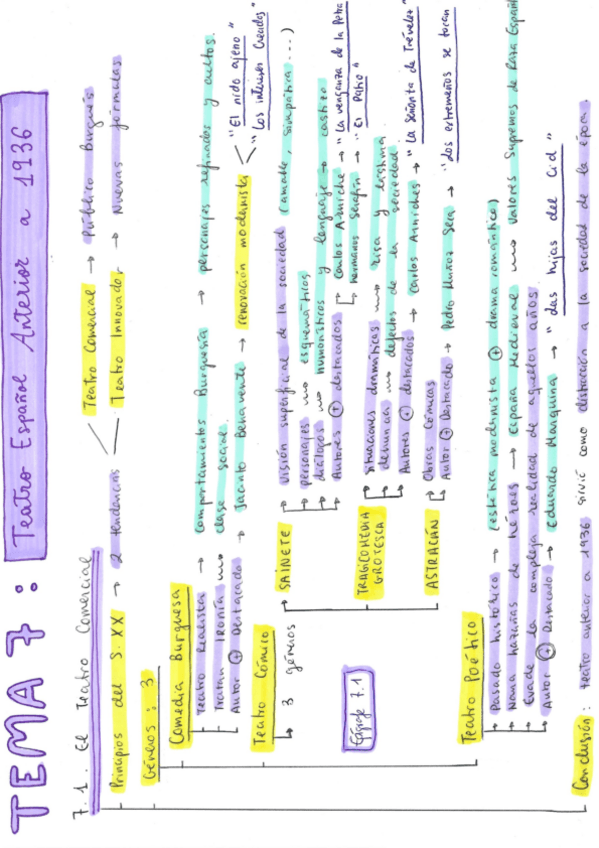 TEMA 7 : Teatro Español Anterior a 1936
7.1. El Teatro Comercial
Principios del S. XX → 2 tendencias
Teatro Comercial → Público Burgués
Teatro Innovador → Nuevas fórmulas.
Géneros : 3
Comedia Burguesa
Teatro Realista → Comportamientos Burguesía → personajes refinados y cultos.
Tratan Ironía clase social.
Autor + Destacado → Jacinto Benavente → renovación modernista
"El nido ajeno"
"Los intereses Creados"
Teatro Cómico
3 géneros
SAINETE
Visión superficial de la sociedad (amable, simpática...)
personajes esquemáticos
diálogos humorísticos y lenguaje → castizo
Autores + destacados → Carlos Arniches → "La venganza de la Petra"
hermanos Serafín → "El Patio"
TRAGICOMEDIA GROTESCA
situaciones dramáticas risa y lástima
denuncian defectos de la sociedad.
Autores + destacados → Carlos Arniches → "La señorita de Trévelez"
ASTRACÁN
Obras Cómicas
Autor + Destacado → Pedro Muñoz Seca → "Los extremeños se tocan
Epígrafe 7.1
Teatro Poético
Pasado histórico → (estética modernista + drama romántico)
Narra hazañas de héroes → España Medieval Valores Supremos de Raza Españ
Evade de la compleja realidad de aquellos años.
Autor + Destacado → Eduardo Marquina → "Las hijas del Cid"
Conclusión : teatro anterior a 1936 sirvió como distracción a la sociedad de la época.